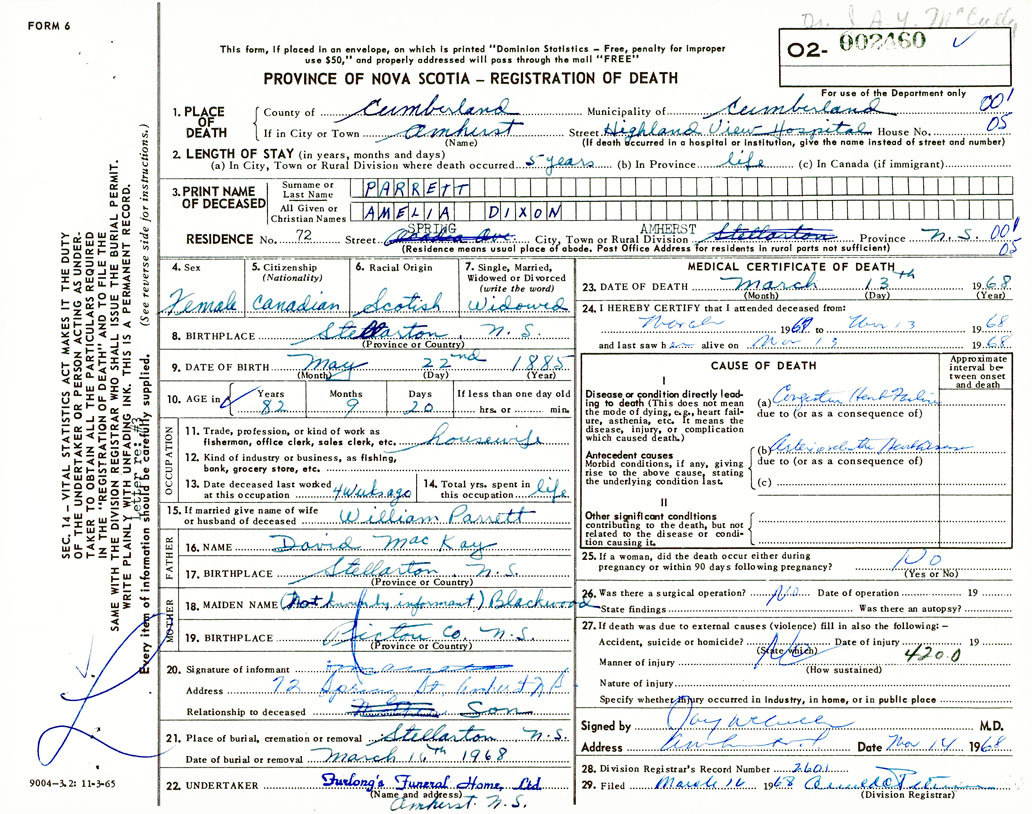 FORM 6
Dr. J. A. Y. McCully
This form, if placed in an envelope, on which is printed "Dominion Statistics – Free, penalty for improper
use $50," and properly addressed will pass through the mail "FREE"
02- 002460 ✓
For use of the Department only
PROVINCE OF NOVA SCOTIA – REGISTRATION OF DEATH
001
05
1. PLACE OF DEATH County of Cumberland Municipality of Cumberland
If in City or Town Amherst Street Highland View Hospital House No.
(Name) (If death occurred in a hospital or institution, give the name instead of street and number)
2. LENGTH OF STAY (in years, months and days)
(a) In City, Town or Rural Division where death occurred 5 years (b) In Province life (c) In Canada (if immigrant)
3. PRINT NAME OF DECEASED Surname or Last Name PARRETT
All Given or Christian Names AMELIA DIXON
SPRING AMHERST
RESIDENCE No. 72 Street Acadia Ave City, Town or Rural Division Stellarton Province N.S. 001
05
(Residence means usual place of abode. Post Office Address for residents in rural parts not sufficient)
4. Sex Female
5. Citizenship (Nationality) Canadian
6. Racial Origin Scotish
7. Single, Married, Widowed or Divorced (write the word) Widowed
8. BIRTHPLACE Stellarton, N.S.
(Province or Country)
9. DATE OF BIRTH May 22nd 1885
(Month) (Day) (Year)
10. AGE in Years 82 Months 9 Days 20 If less than one day old hrs. or min.
OCCUPATION
11. Trade, profession or kind of work as fisherman, office clerk, sales clerk, etc. housewife
12. Kind of industry or business, as fishing, bank, grocery store, etc.
13. Date deceased last worked at this occupation 4 weeks ago
14. Total yrs. spent in this occupation life
15. If married give name of wife or husband of deceased William Parrett
FATHER
16. NAME David MacKay
17. BIRTHPLACE Stellarton, N.S.
(Province or Country)
MOTHER
18. MAIDEN NAME (Not known by informant) Blackwood
19. BIRTHPLACE Pictou Co. N.S.
(Province or Country)
20. Signature of informant
Address 72 Spring St Amherst N.S.
Relationship to deceased Son
21. Place of burial, cremation or removal Stellarton N.S.
Date of burial or removal March 16th 1968
22. UNDERTAKER Furlong's Funeral Home, Ltd.
(Name and address)
Amherst N.S.
MEDICAL CERTIFICATE OF DEATH
23. DATE OF DEATH March 13th 1968
(Month) (Day) (Year)
24. I HEREBY CERTIFY that I attended deceased from:
March 1968 to Mar 13 1968
and last saw her alive on Mar 13 1968
CAUSE OF DEATH
Approximate interval between onset and death
I
Disease or condition directly leading to death (This does not mean the mode of dying, e.g., heart failure, asthenia, etc. It means the disease, injury, or complication which caused death.)
(a) Congestive Heart Failure
due to (or as a consequence of)
Antecedent causes
Morbid conditions, if any, giving rise to the above cause, stating the underlying condition last.
(b) Arteriosclerotic Heart Disease
due to (or as a consequence of)
(c)
II
Other significant conditions contributing to the death, but not related to the disease or condition causing it.
25. If a woman, did the death occur either during pregnancy or within 90 days following pregnancy? No
(Yes or No)
26. Was there a surgical operation? No Date of operation 19
State findings Was there an autopsy?
27. If death was due to external causes (violence) fill in also the following: –
Accident, suicide or homicide? Date of injury 19
(State which)
Manner of injury 420.0
(How sustained)
Nature of injury
Specify whether injury occurred in industry, in home, or in public place
Signed by M.D.
Address Date Mar 14 1968
28. Division Registrar's Record Number 2601
29. Filed March 16 1968
(Division Registrar)
SEC. 14 – VITAL STATISTICS ACT MAKES IT THE DUTY
OF THE UNDERTAKER OR PERSON ACTING AS UNDER-
TAKER TO OBTAIN ALL THE PARTICULARS REQUIRED
IN THE "REGISTRATION OF DEATH" AND TO FILE THE
SAME WITH THE DIVISION REGISTRAR WHO SHALL ISSUE THE BURIAL PERMIT.
WRITE PLAINLY WITH UNFADING INK. THIS IS A PERMANENT RECORD.
Letter re: #3
Every item of information should be carefully supplied. (See reverse side for instructions.)
9004–3.2: 11-3-65